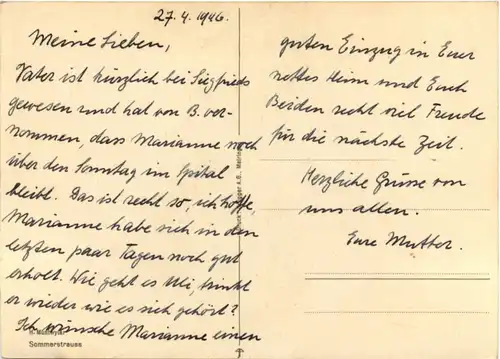 27.4.1946.
Meine Lieben,
Vater ist kürzlich bei Siegfrieds
gewesen und hat von B. ver-
nommen, dass Marianne noch
über den Sonntag im Spital
bleibt. Das ist recht so, ich hoffe,
Marianne habe sich in den
letzten paar Tagen noch gut
erholt. Wie geht es Ueli, trinkt
er wieder wie es sich gehört?
Ich wünsche Marianne einen
Sommerstrauss
guten Einzug in Euer
nettes Heim und Euch
Beiden recht viel Freude
für die nächste Zeit.
Herzliche Grüsse von
uns allen.
Eure Mutter.